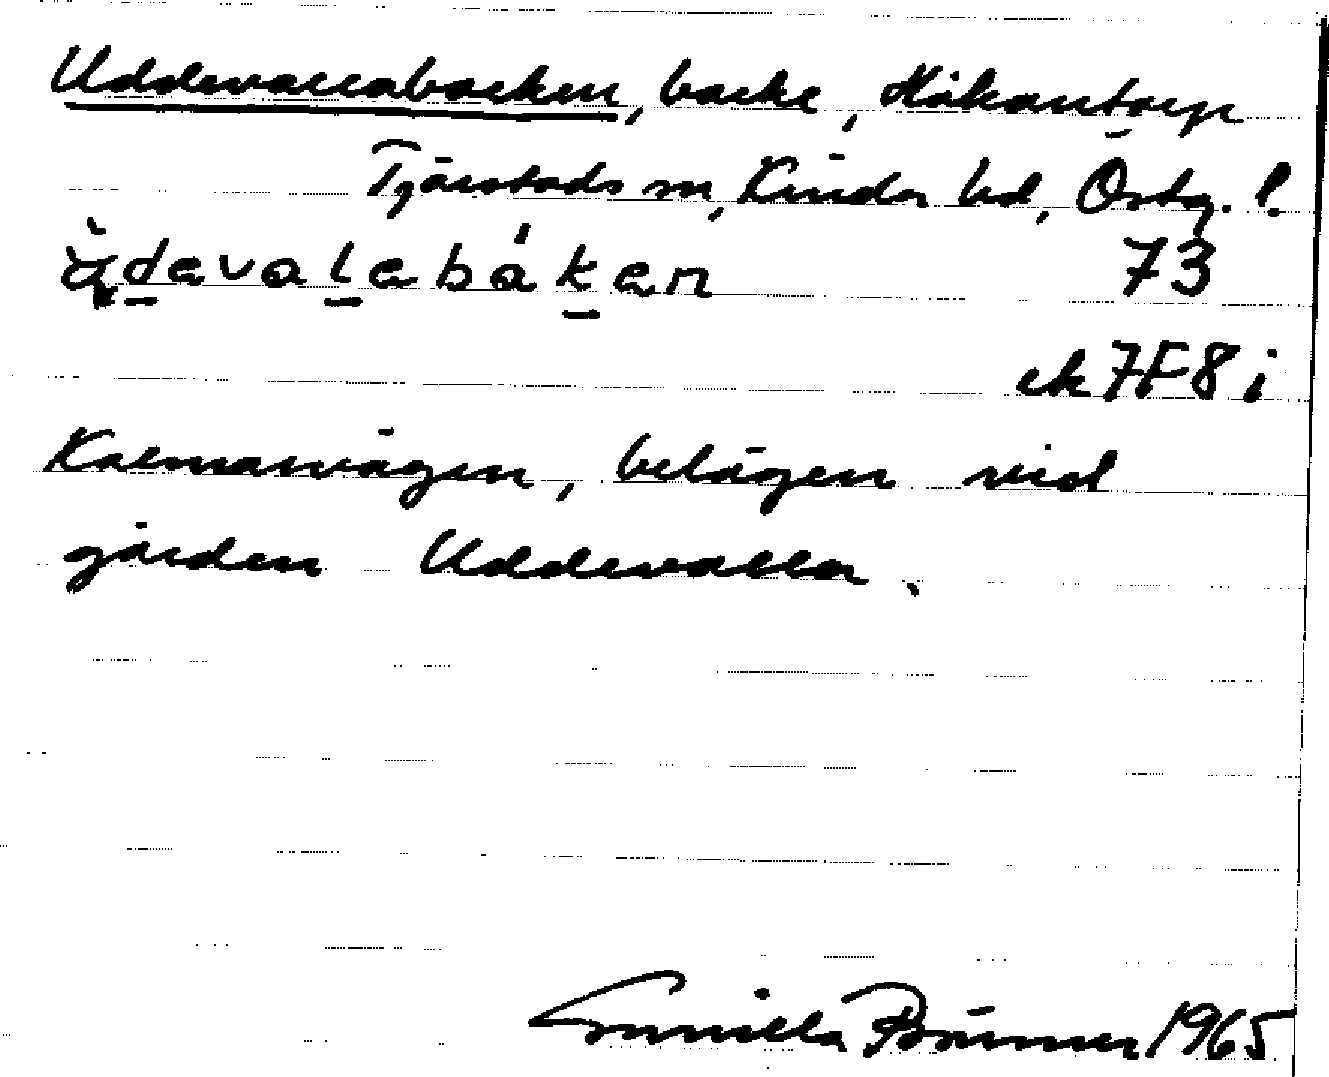 Uddevallabacken, backe, Håkantorp
Tjärstads sn, Kinda hd, Östg. l.
ådevalabakan 73
ek 7F8i
Kalmarvägen, belägen vid
gården Uddevalla.
Gunilla Brünner 1965